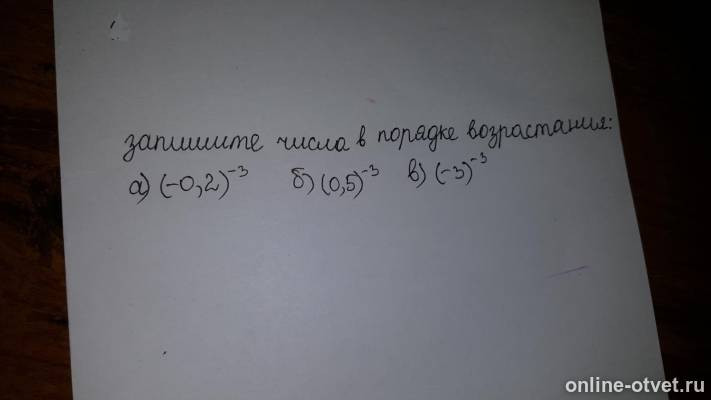 запишите числа в порядке возрастания:
а) (-0,2)⁻³ б) (0,5)⁻³ в) (-3)⁻³
online-otvet.ru